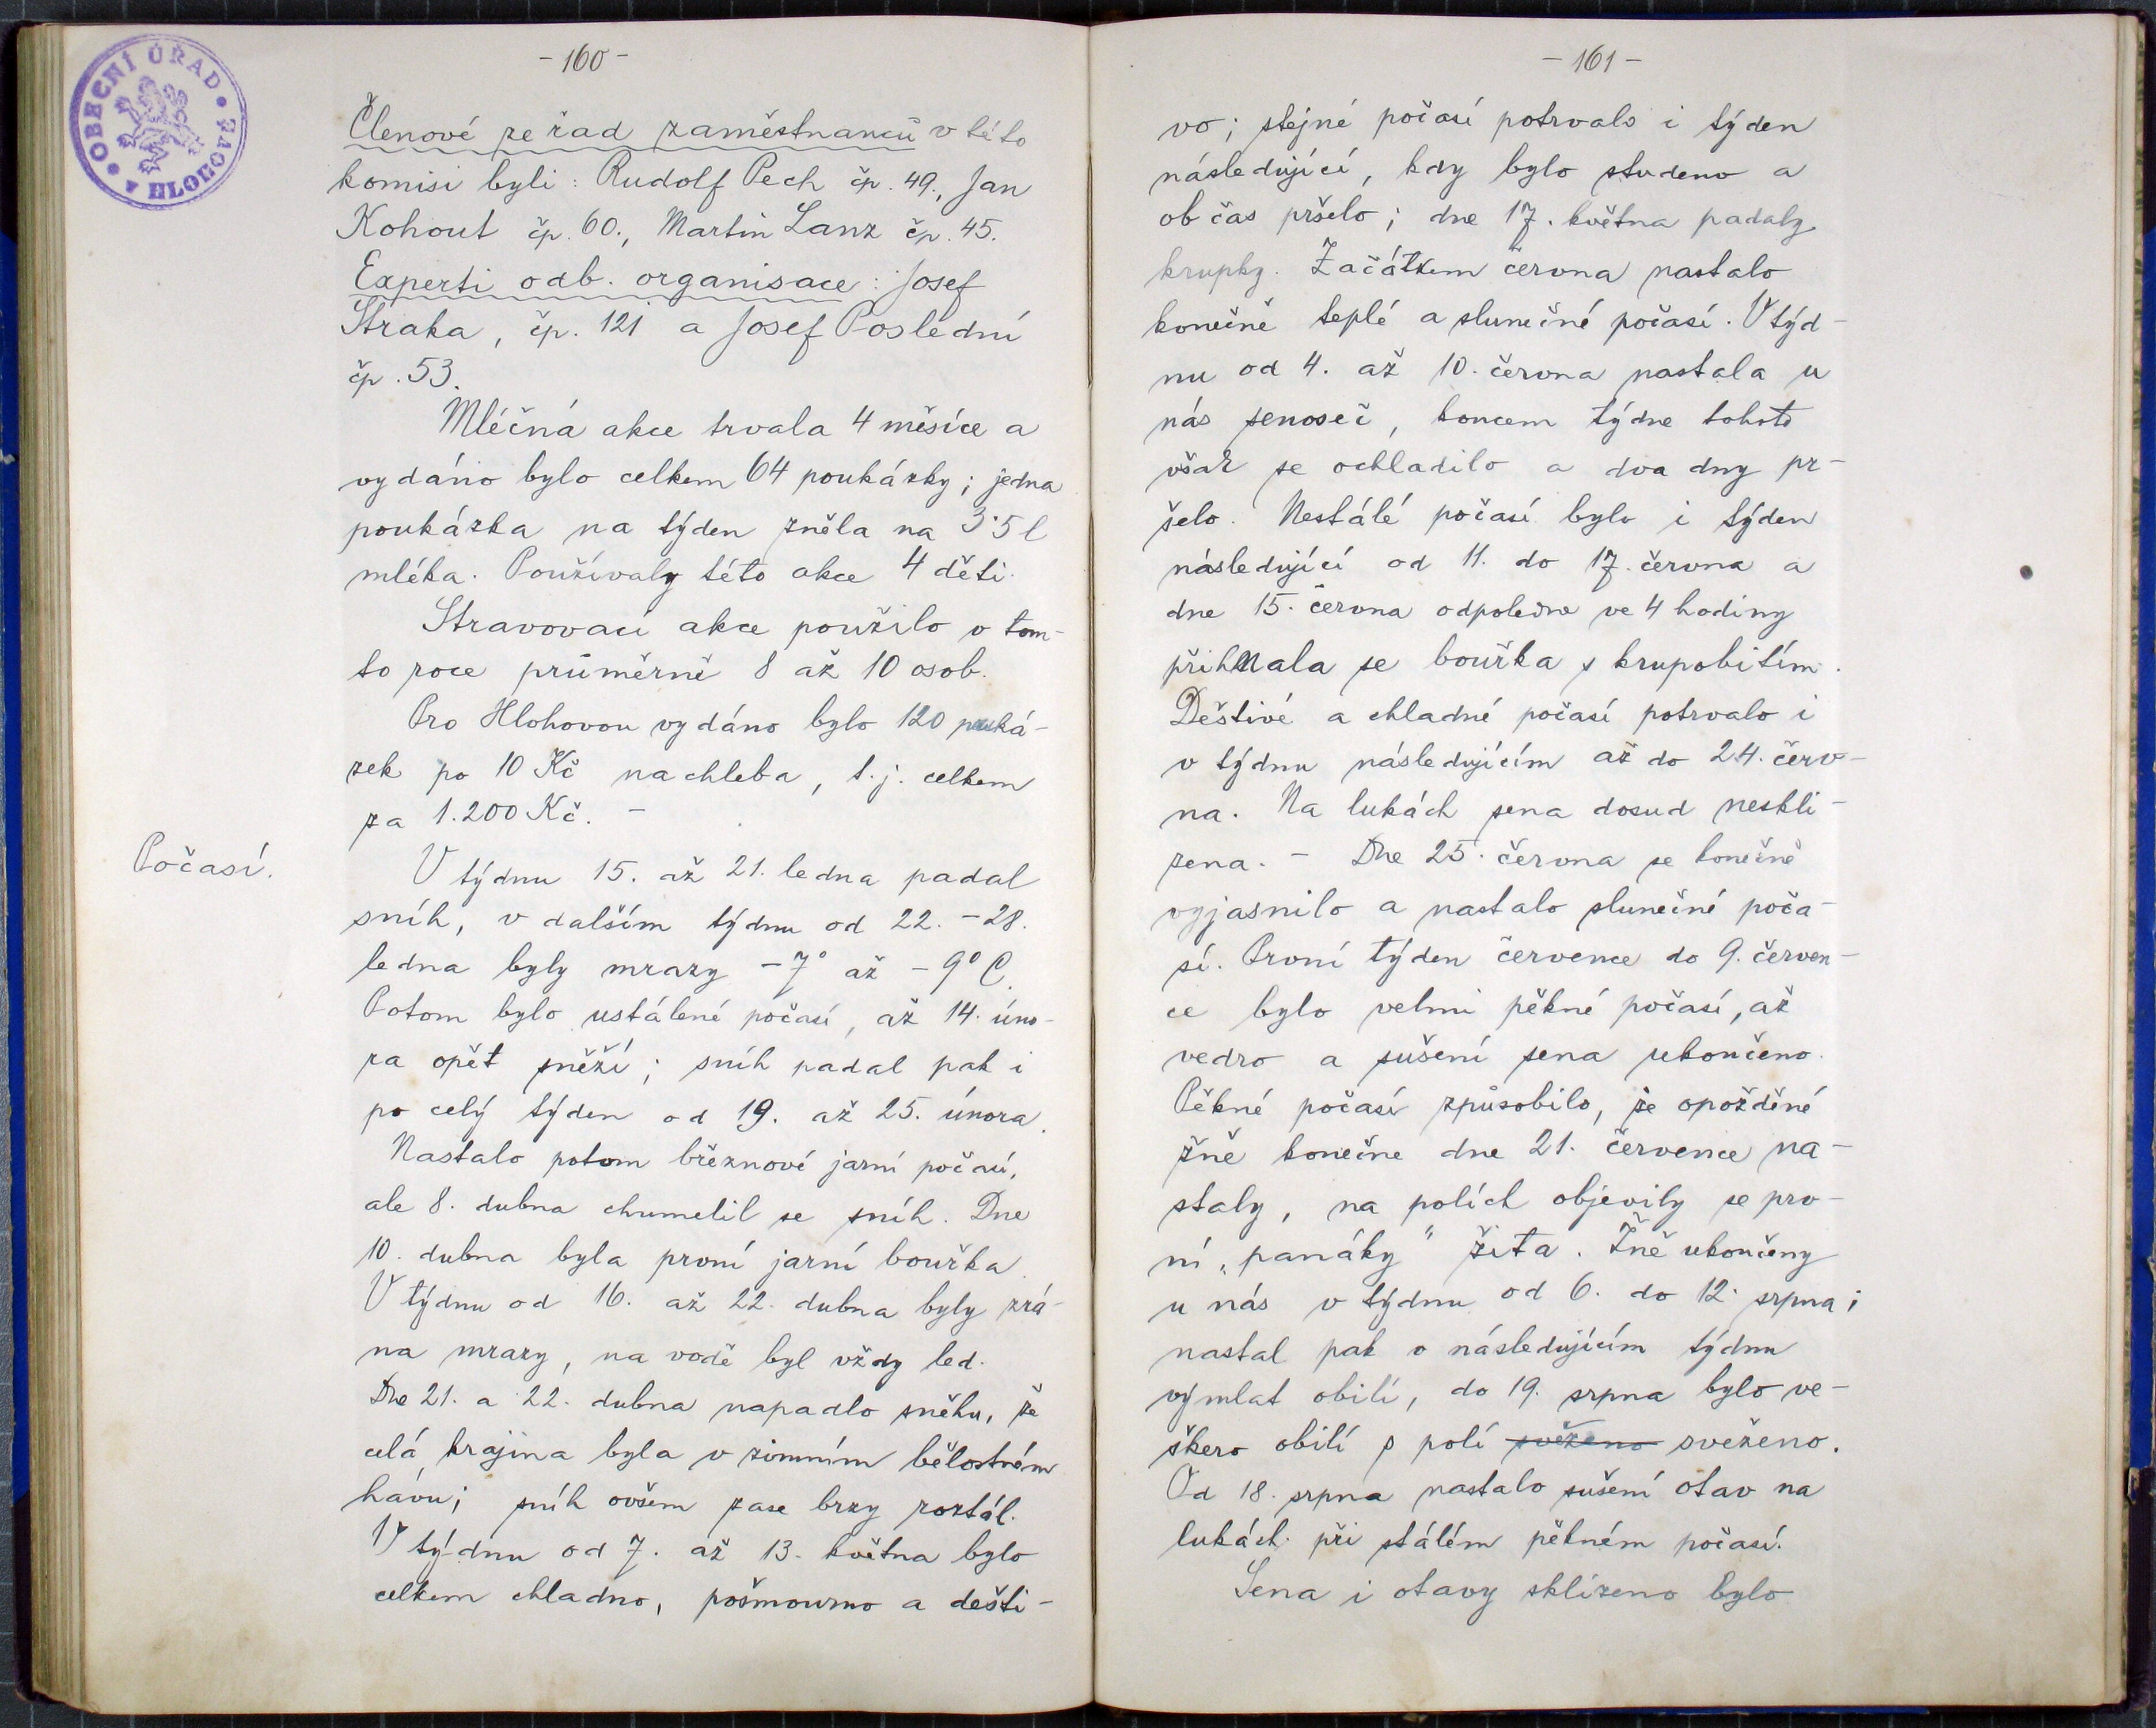 OBECNÍ ÚŘAD
V HLOHOVÉ
- 160 -
Členové ze řad zaměstnanců v této
komisi byli: Rudolf Pech čp. 49., Jan
Kohout čp. 60., Martin Lanz čp. 45.
Experti odb. organisace: Josef
Straka, čp. 121 a Josef Poslední
čp. 53.
Mléčná akce trvala 4 měsíce a
vydáno bylo celkem 64 poukázky; jedna
poukázka na týden zněla na 3·5 l
mléka. Používaly této akce 4 děti.
Stravovací akce použilo v tom-
to roce průměrně 8 až 10 osob.
Pro Hlohovou vydáno bylo 120 pouká-
zek po 10 Kč na chleba, t.j. celkem
za 1.200 Kč. -
Počasí.
V týdnu 15. až 21. ledna padal
sníh, v dalším týdnu od 22. - 28.
ledna byly mrazy - 7° až - 9° C.
Potom bylo ustálené počasí, až 14. úno-
ra opět sněží; sníh padal pak i
po celý týden od 19. až 25. února.
Nastalo potom březnové jarní počasí,
ale 8. dubna chumelil se sníh. Dne
10. dubna byla první jarní bouřka.
V týdnu od 16. až 22. dubna byly zrá-
na mrazy, na vodě byl vždy led.
Dne 21. a 22. dubna napadlo sněhu, že
celá krajina byla v zimním bělostném
hávu; sníh ovšem zase brzy roztál.
V týdnu od 7. až 13. května bylo
celkem chladno, pošmourno a dešti-
- 161 -
vo; stejné počasí potrvalo i týden
následující, kdy bylo studeno a
občas pršelo; dne 17. května padaly
krupky. Začátkem června nastalo
konečně teplé a slunečné počasí. V týd-
nu od 4. až 10. června nastala u
nás senoseč, koncem týdne tohoto
však se ochladilo a dva dny pr-
šelo. Nestálé počasí bylo i týden
následující od 11. do 17. června a
dne 15. června odpoledne ve 4 hodiny
přihnala se bouřka s krupobitím.
Deštivé a chladné počasí potrvalo i
v týdnu následujícím až do 24. červ-
na. Na lukách sena dosud neskli-
zena. - Dne 25. června se konečně
vyjasnilo a nastalo slunečné poča-
sí. První týden července do 9. červen-
ce bylo velmi pěkné počasí, až
vedro a sušení sena ukončeno.
Pěkné počasí způsobilo, že opožděné
žně konečne dne 21. července na-
staly, na polích objevily se prv-
ní „panáky" žita. Žně ukončeny
u nás v týdnu od 6. do 12. srpna;
nastal pak v následujícím týdnu
výmlat obilí, do 19. srpna bylo ve-
škero obilí s polí svěženo sveženo.
Od 18. srpna nastalo sušení otav na
lukách při stálém pěkném počasí.
Sena i otavy sklizeno bylo